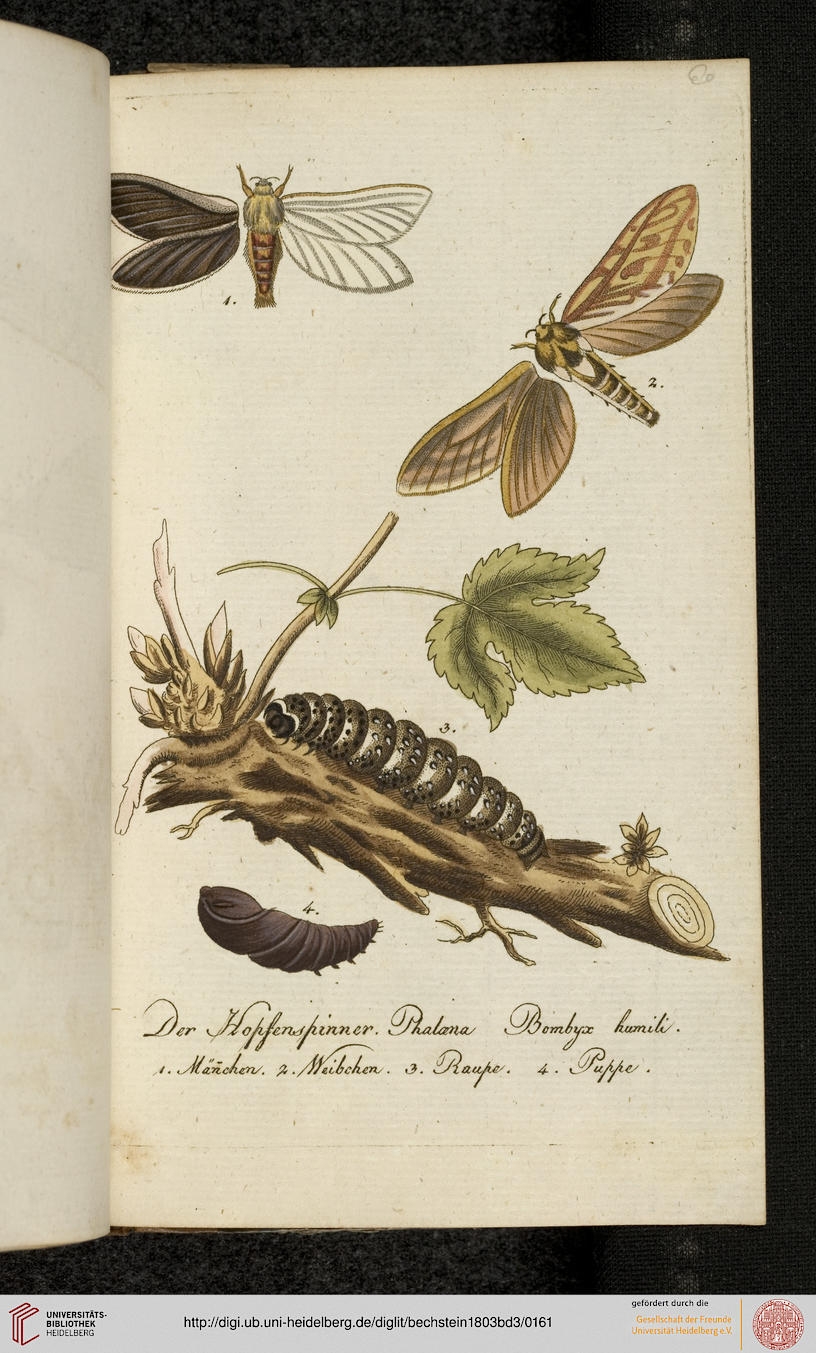 1.
2.
3.
4.
Der Hopfenspinner. Phalæna Bombyx humili.
1. Män̄chen. 2. Weibchen. 3. Raupe. 4. Puppe.
UNIVERSITÄTS-
BIBLIOTHEK
HEIDELBERG
http://digi.ub.uni-heidelberg.de/diglit/bechstein1803bd3/0161
gefördert durch die
Gesellschaft der Freunde
Universität Heidelberg e.V.